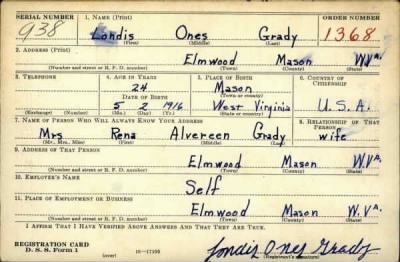 SERIAL NUMBER 1. NAME (Print) ORDER NUMBER
938 Londis Ones Grady 1368
(First) (Middle) (Last)
2. ADDRESS (Print)
Elmwood Mason W.Va.
(Number and street or R. F. D. number) (Town) (County) (State)
3. TELEPHONE 4. AGE IN YEARS 5. PLACE OF BIRTH 6. COUNTRY OF CITIZENSHIP
24 Mason
DATE OF BIRTH (Town or county)
5 2 1916 West Virginia U.S.A.
(Exchange) (Number) (Mo.) (Day) (Yr.) (State or country)
7. NAME OF PERSON WHO WILL ALWAYS KNOW YOUR ADDRESS 8. RELATIONSHIP OF THAT PERSON
Mrs Rena Alvereen Grady wife
(Mr., Mrs., Miss) (First) (Middle) (Last)
9. ADDRESS OF THAT PERSON
Elmwood Mason W.Va
(Number and street or R. F. D. number) (Town) (County) (State)
10. EMPLOYER'S NAME
Self
11. PLACE OF EMPLOYMENT OR BUSINESS
Elmwood Mason W.Va.
(Number and street or R. F. D. number) (Town) (County) (State)
I AFFIRM THAT I HAVE VERIFIED ABOVE ANSWERS AND THAT THEY ARE TRUE.
REGISTRATION CARD
D. S. S. Form 1 (over) 16—17105 Londis Ones Grady
(Registrant's signature)